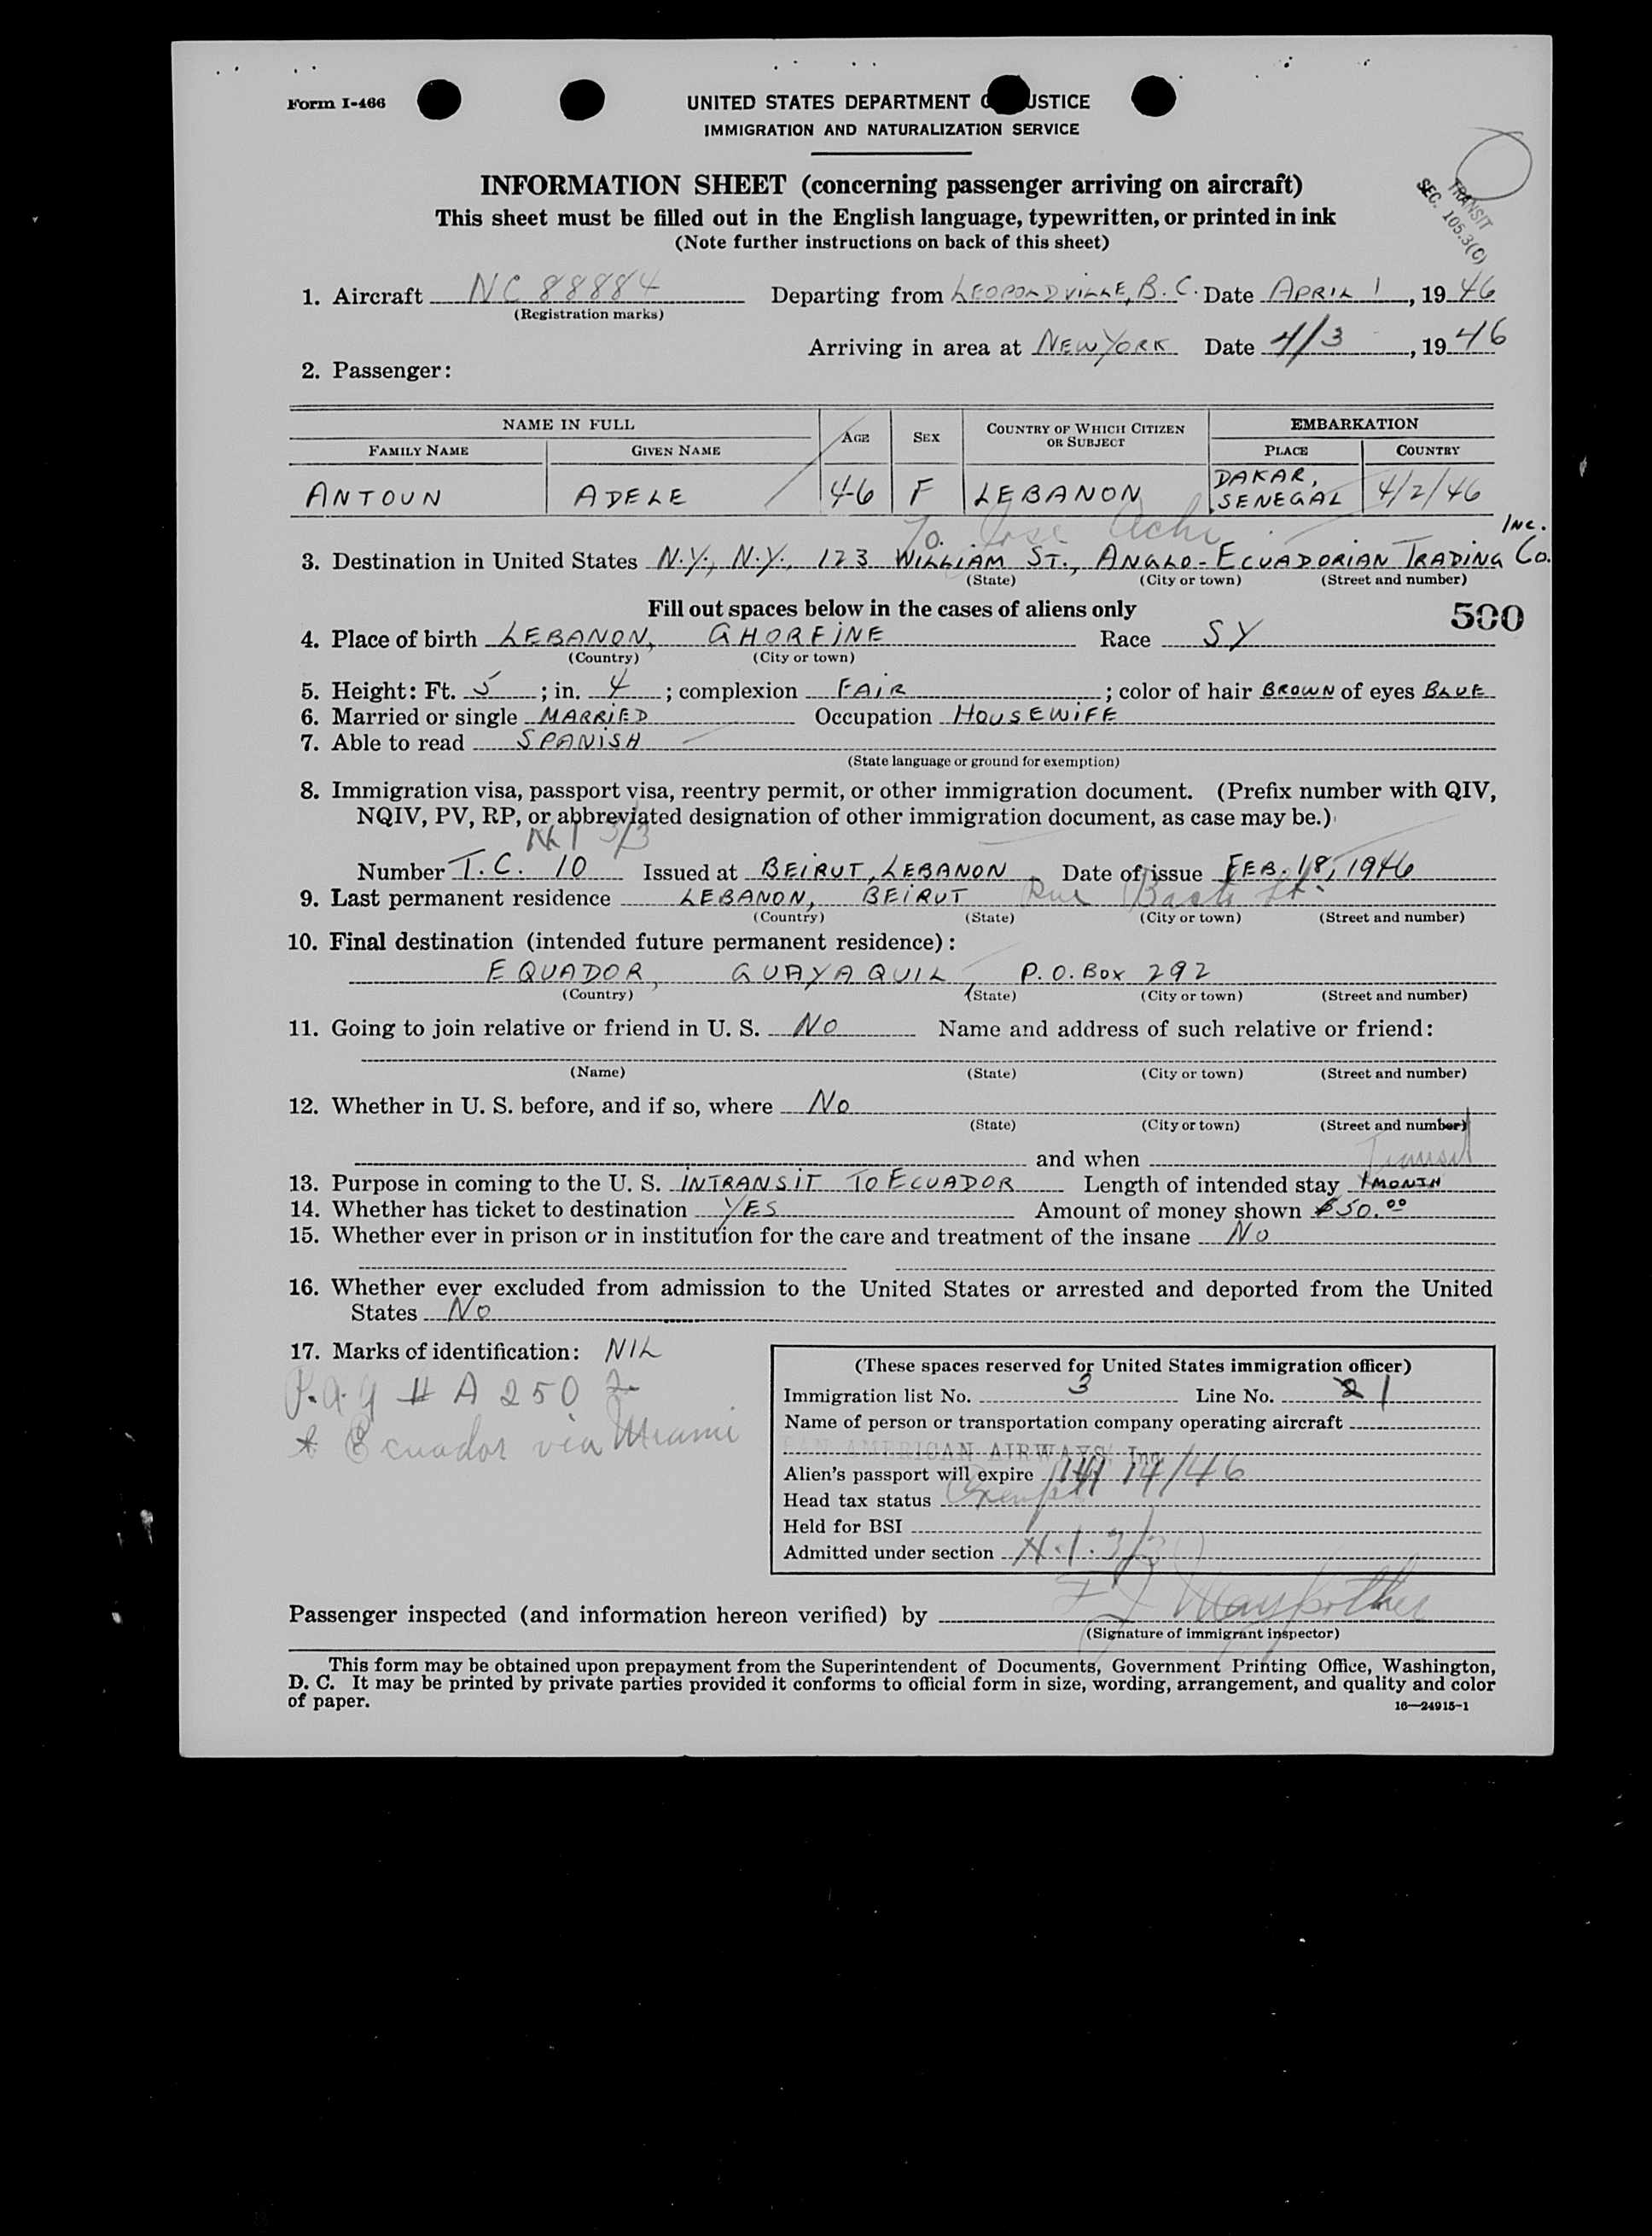 Form I-466
UNITED STATES DEPARTMENT OF JUSTICE
IMMIGRATION AND NATURALIZATION SERVICE
INFORMATION SHEET (concerning passenger arriving on aircraft)
This sheet must be filled out in the English language, typewritten, or printed in ink
(Note further instructions on back of this sheet)
TRANSIT
SEC. 105.3(C)
1. Aircraft NC 88884 Departing from LEOPOLDVILLE, B.C. Date APRIL 1, 1946
(Registration marks)
Arriving in area at NEW YORK Date 4/3, 1946
2. Passenger:
NAME IN FULL AGE SEX COUNTRY OF WHICH CITIZEN OR SUBJECT EMBARKATION
FAMILY NAME GIVEN NAME PLACE COUNTRY
ANTOUN ADELE 46 F LEBANON DAKAR, SENEGAL 4/2/46
To Jose Achi
3. Destination in United States N.Y., N.Y., 123 WILLIAM ST., ANGLO-ECUADORIAN TRADING Co. INC.
(State) (City or town) (Street and number)
Fill out spaces below in the cases of aliens only
500
4. Place of birth LEBANON, GHORFINE Race SY
(Country) (City or town)
5. Height: Ft. 5; in. 4; complexion FAIR; color of hair BROWN of eyes BLUE
6. Married or single MARRIED Occupation HOUSEWIFE
7. Able to read SPANISH
(State language or ground for exemption)
8. Immigration visa, passport visa, reentry permit, or other immigration document. (Prefix number with QIV,
NQIV, PV, RP, or abbreviated designation of other immigration document, as case may be.)
3/3
Number T.C. 10 Issued at BEIRUT, LEBANON Date of issue FEB. 18, 1946
9. Last permanent residence LEBANON, BEIRUT Rue St.
(Country) (State) (City or town) (Street and number)
10. Final destination (intended future permanent residence):
EQUADOR, GUAYAQUIL, P.O. Box 292
(Country) (State) (City or town) (Street and number)
11. Going to join relative or friend in U. S. No Name and address of such relative or friend:
(Name) (State) (City or town) (Street and number)
12. Whether in U. S. before, and if so, where No
(State) (City or town) (Street and number)
and when
Transit
13. Purpose in coming to the U. S. INTRANSIT TO ECUADOR Length of intended stay 1 MONTH
14. Whether has ticket to destination YES Amount of money shown $50.00
15. Whether ever in prison or in institution for the care and treatment of the insane No
16. Whether ever excluded from admission to the United States or arrested and deported from the United
States No
17. Marks of identification: NIL
# A 2502
to Ecuador via Miami
(These spaces reserved for United States immigration officer)
Immigration list No. 3 Line No. 21
Name of person or transportation company operating aircraft
PAN AMERICAN AIRWAYS, Inc.
Alien's passport will expire 14/46
Head tax status Exempt
Held for BSI
Admitted under section
Passenger inspected (and information hereon verified) by
(Signature of immigrant inspector)
This form may be obtained upon prepayment from the Superintendent of Documents, Government Printing Office, Washington,
D. C. It may be printed by private parties provided it conforms to official form in size, wording, arrangement, and quality and color
of paper.
16—24915-1